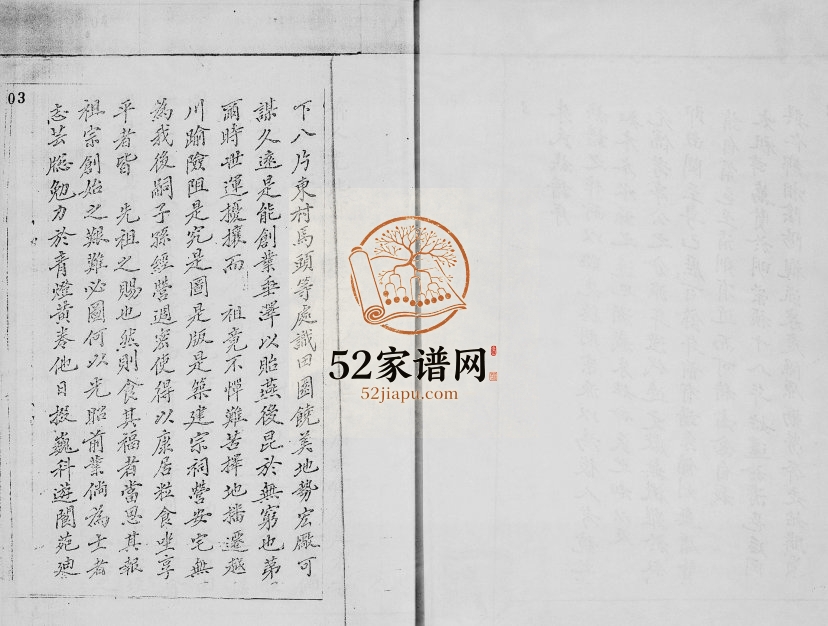 下八片東村馬頭等處識田園饒美地勢宏厰可
謀久遠是能創業垂澤以貽燕後昆於無窮也第
爾時世運擾攘而 祖竟不憚難苦擇地播遷越
川踰險阻是究是圖是版是築建宗祠營安宅無
為我後嗣子孫經營週密使得以康居粒食坐享
平者皆 先祖之賜也然則食其福者當思其報
祖宗創始之艱難必圖何以光昭前業倘為士者
志芸牎勉力於青燈黃卷他日掇巍科遊閬苑廸
03
52家谱网
52jiapu.com